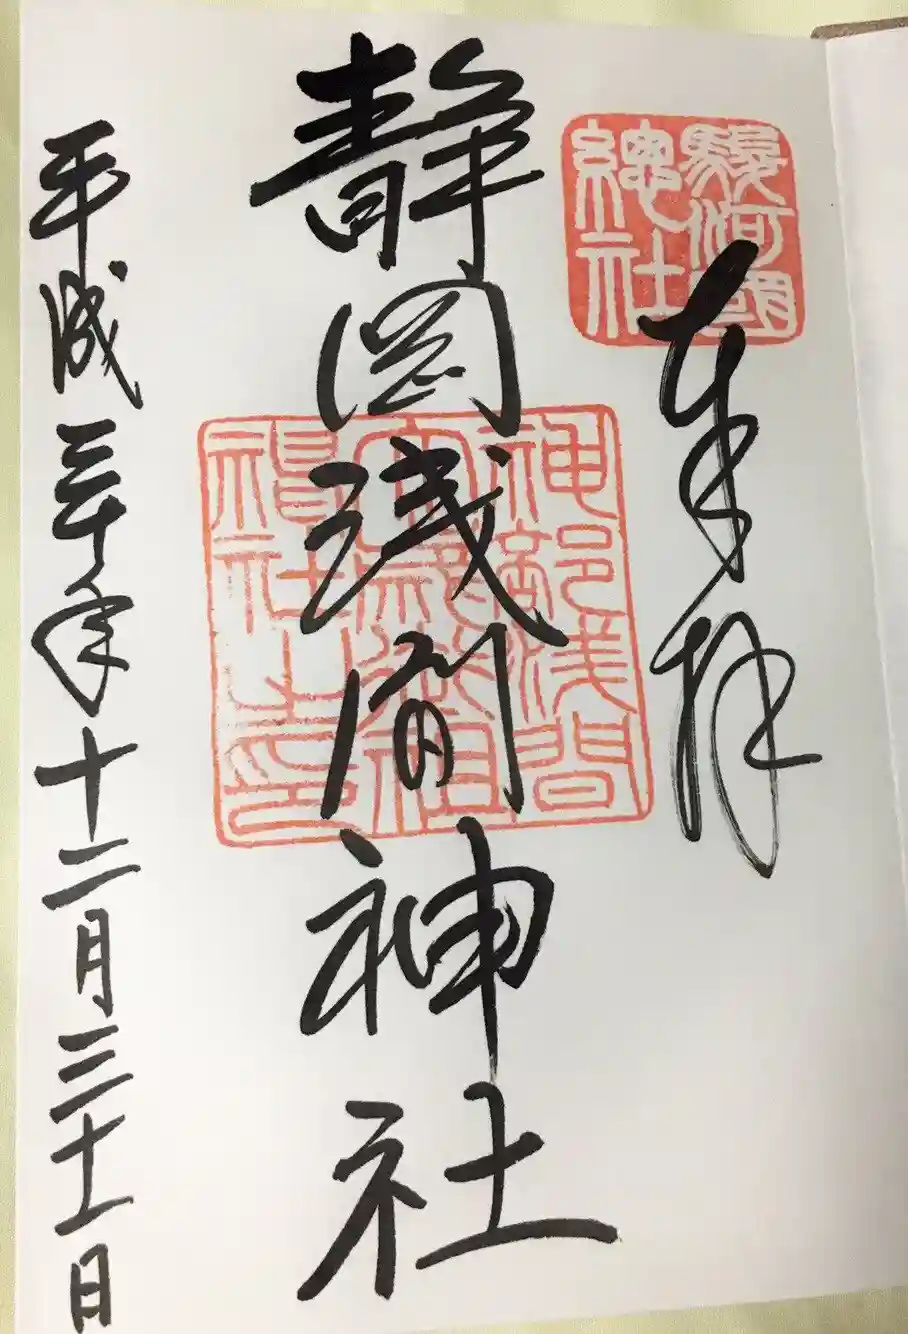 駿河國
總社
奉拝
静岡浅間神社
神部浅間
大歳御祖
神社之印
平成三十年十二月三十一日